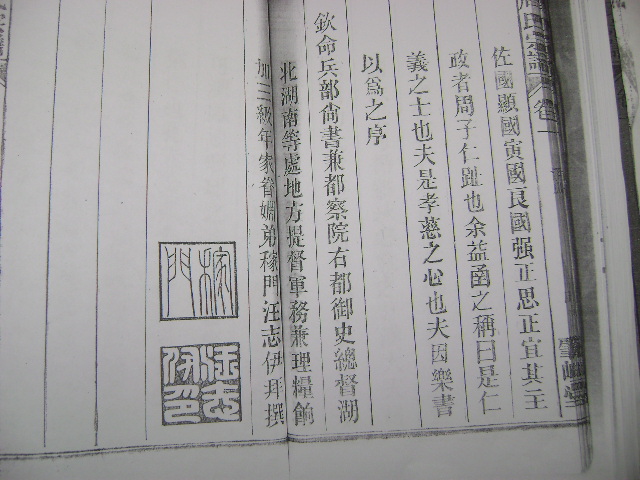 周氏宗譜 卷一
雪嶼堂
佐國顯國寅國良國强正思正宜其主
政者周子仁趾也余益函之稱曰是仁
義之士也夫是孝慈之心也夫因樂書
以爲之序
欽命兵部尙書兼都察院右都御史總督湖
北湖南等處地方提督軍務兼理糧餉
加三級年家眷姻弟稼門汪志伊拜撰
稼門
汪志伊印